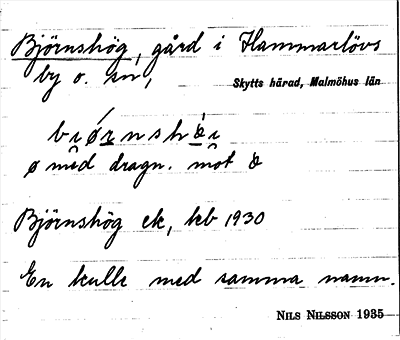 Björnshög, gård i Hammarlövs
by o. sn,
Skytts härad, Malmöhus län
ø med dragn. mot
Björnshög ek, kb 1930
En kulle med samma namn.
NILS NILSSON 1935